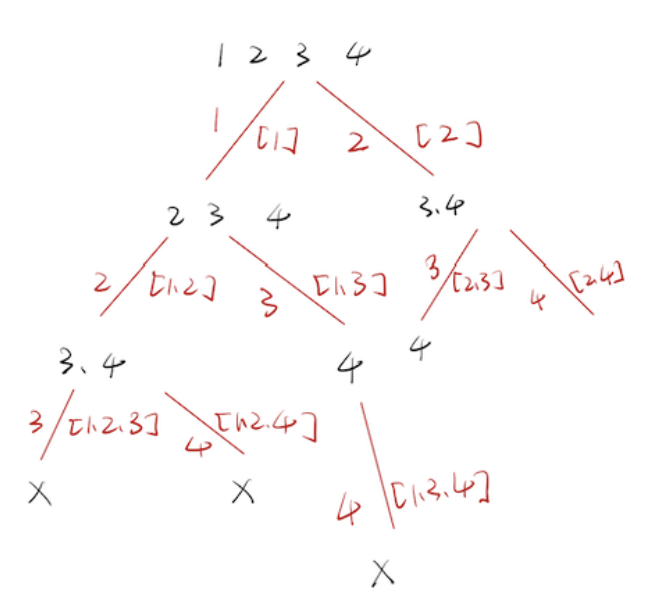 1 2 3 4
1 [1] 2 [2]
2 3 4 3.4
2 [1,2] 3 [1,3] 3 [2,3] 4 [2,4]
3、4 4 4
3 [1,2,3] 4 [1,2,4]
X X 4 [1,3,4]
X